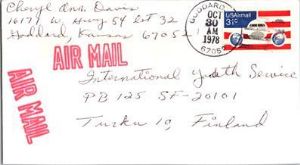 Cheryl Ann Davis
16171 W. Hwy 54 lot 32
Goddard, Kansas 67052
GODDARD,
OCT
30
AM
1978
67052
USAirmail
31c
AIR MAIL
AIR MAIL
International Youth Service
PB 125 SF-20101
Turku 10, Finland